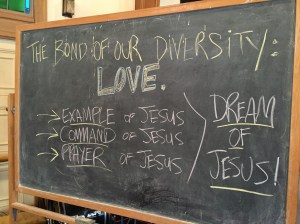 THE BOND OF OUR DIVERSITY:
LOVE.
→ EXAMPLE OF JESUS
→ COMMAND OF JESUS
→ PRAYER OF JESUS
DREAM
OF
JESUS!